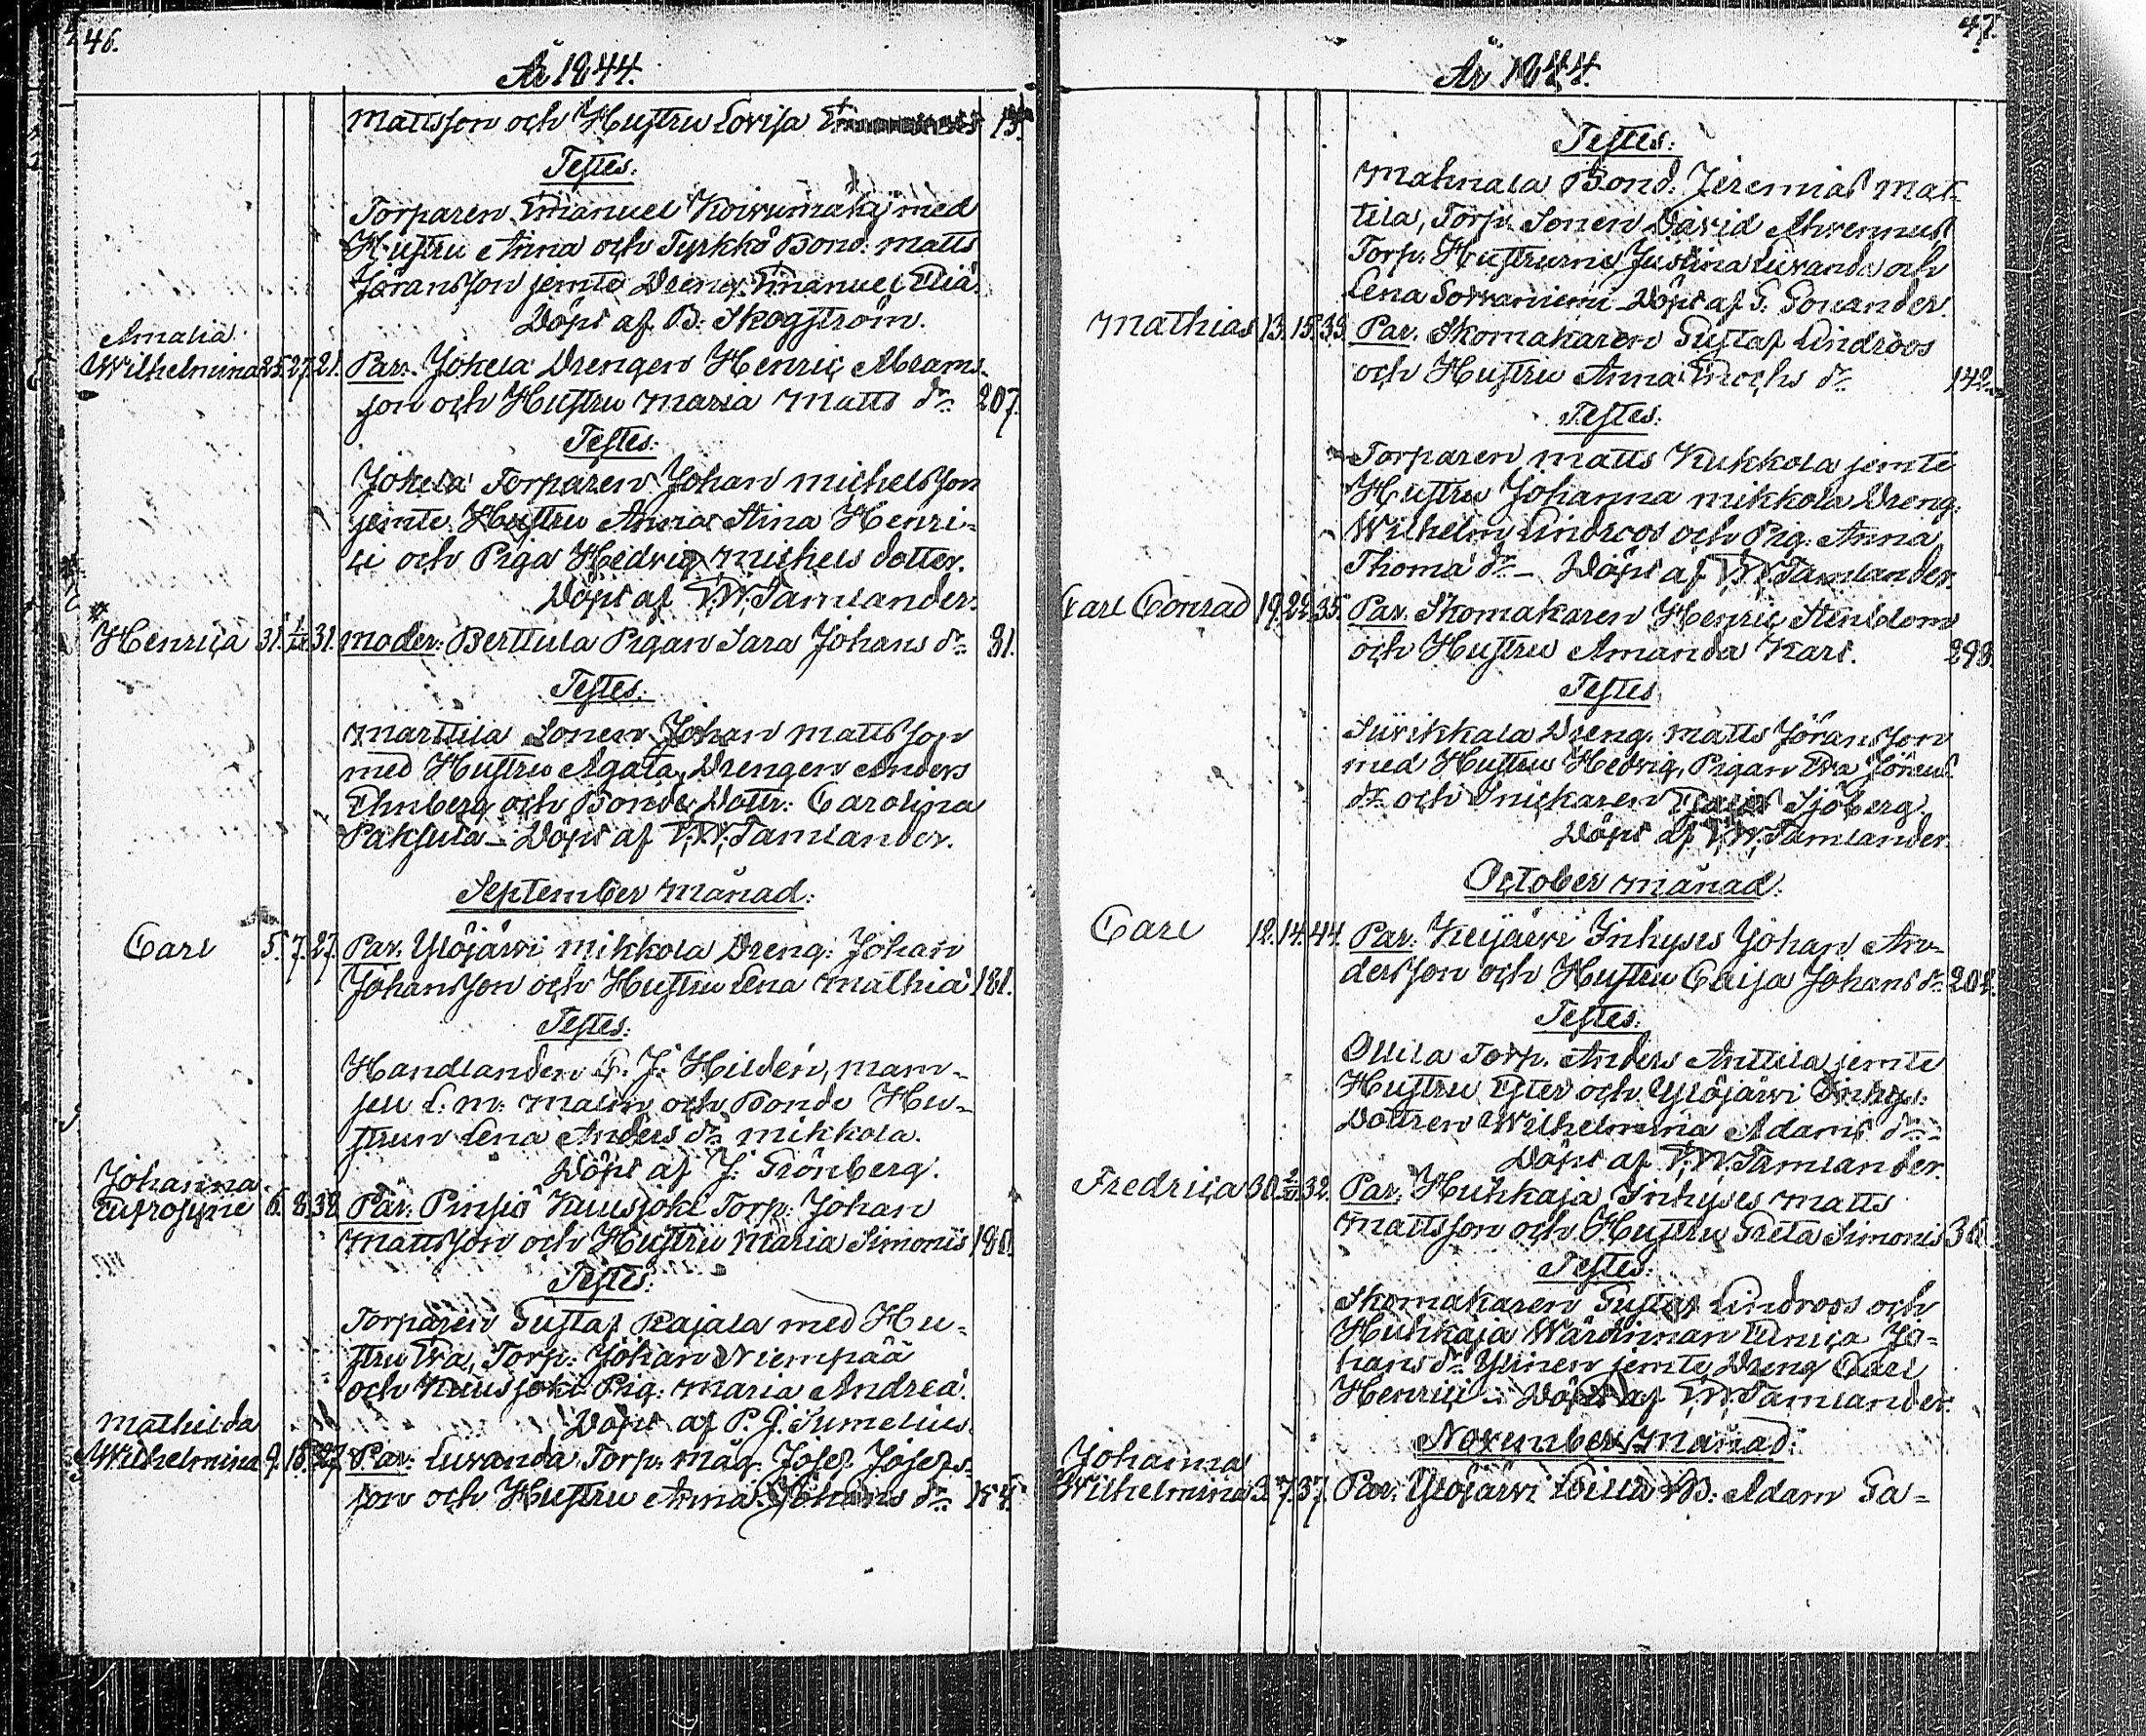 46.
År 1844.
Mattsson och Hustru Lovisa 13.
Testes:
Torparen Emanuel Koivumäki med
Hustru Anna och Tyrkkö Bond. Matts
Jöransson jemte Dreng. Emanuel Eliæ.
Döpt af B. Skogström.
Amalia
Wilhelmina 25. 27. 21. Par. Jokela Drengen Henric Abrams-
son och Hustru Maria Matts dr. 207.
Testes:
Jokela Torparen Johan Michelsson
jemte Hustru Anna Stina Henri-
ci och Piga Hedvig Michels dotter.
Döpt af F.W. Tamlander.
* Henrica 31. 31. Moder: Berttula Pigan Sara Johans dr. 81.
Testes:
Marttila Sonen Johan Mattsson
med Hustru Agata, Drengen Anders
Ehnberg och Bonde Dottr. Carolina
Paksula - Döpt af F.W. Tamlander.
September Månad:
Carl 5. 7. 27. Par. Ylöjärvi Mikkola Dreng. Johan
Johansson och Hustru Lena Mathiæ 181.
Testes:
Handlanden J. Hildén, Mam-
sell L. M. Malin och Bonde Hu-
strun Lena Anders dr. Mikkola.
Döpt af J. Grönberg.
Johanna
Eufrosyne 6. 8. 38. Par. Pinsiö Kuusjoki Torp. Johan
Mattsson och Hustru Maria Simonis 186.
Testes:
Torparen Gustaf Rajala med Hu-
stru Eva, Torp. Johan Niempää
och Kuusjoki Pig. Maria Andreæ.
Döpt af P. J. Sumelius.
Mathilda
Wilhelmina 9. 15. 27. Par. Luvanda Torp. Måg. Josef Josefs-
son och Hustru Anna Johans dr. 154.
47.
År 1844.
Testes:
Mahnala Bond. Jeremias Mat-
tila, Torp. Sonen David Ahvennus
Torp. Hustrurne Justina Luvanda och
Lena Sorvaniemi - Döpt af G. Gonander.
Mathias 13. 15. 33. Par. Skomakaren Gustaf Lindroos
och Hustru Anna Enochs dr. 142.
Testes:
Torparen Matts Kukkola jemte
Hustru Johanna Mikkola Dreng.
Wilhelm Lindroos och Pig. Anna
Thomæ dr. - Döpt af F.W. Tamlander.
Carl Conrad 19. 22. 35. Par. Skomakaren Henric Stenblom
och Hustru Amanda Karl. 298.
Testes
Siivikkala Dreng. Matts Jöransson
med Hustru Hedvig, Pigan Eva Jörens
dr. och Snickaren Sjöberg.
Döpt af F.W. Tamlander.
October Månad:
Carl 12. 14. 44. Par. Keijärvi Inhyses Johan An-
dersson och Hustru Caisa Johans dr. 202.
Testes:
Ollila Torp. Anders Anttila jemte
Hustru Ester och Ylöjärvi Inhys.
Dottren Wilhelmina Adams dr. -
Döpt af F.W. Tamlander.
Fredrica 30. 32. Par. Huhkaja Inhyses Matts
Mattsson och Hustru Greta Simonis 36.
Testes:
Skomakaren Gustaf Lindroos och
Huhkaja Wärdinnan Ulrica Jo-
hans dr. Ylinen jemte Dreng Carl
Henrici - Döpt af F.W. Tamlander.
November Månad:
Johanna
Wilhelmina 3. 7. 37. Par. Ylöjärvi B. Adam Ga-